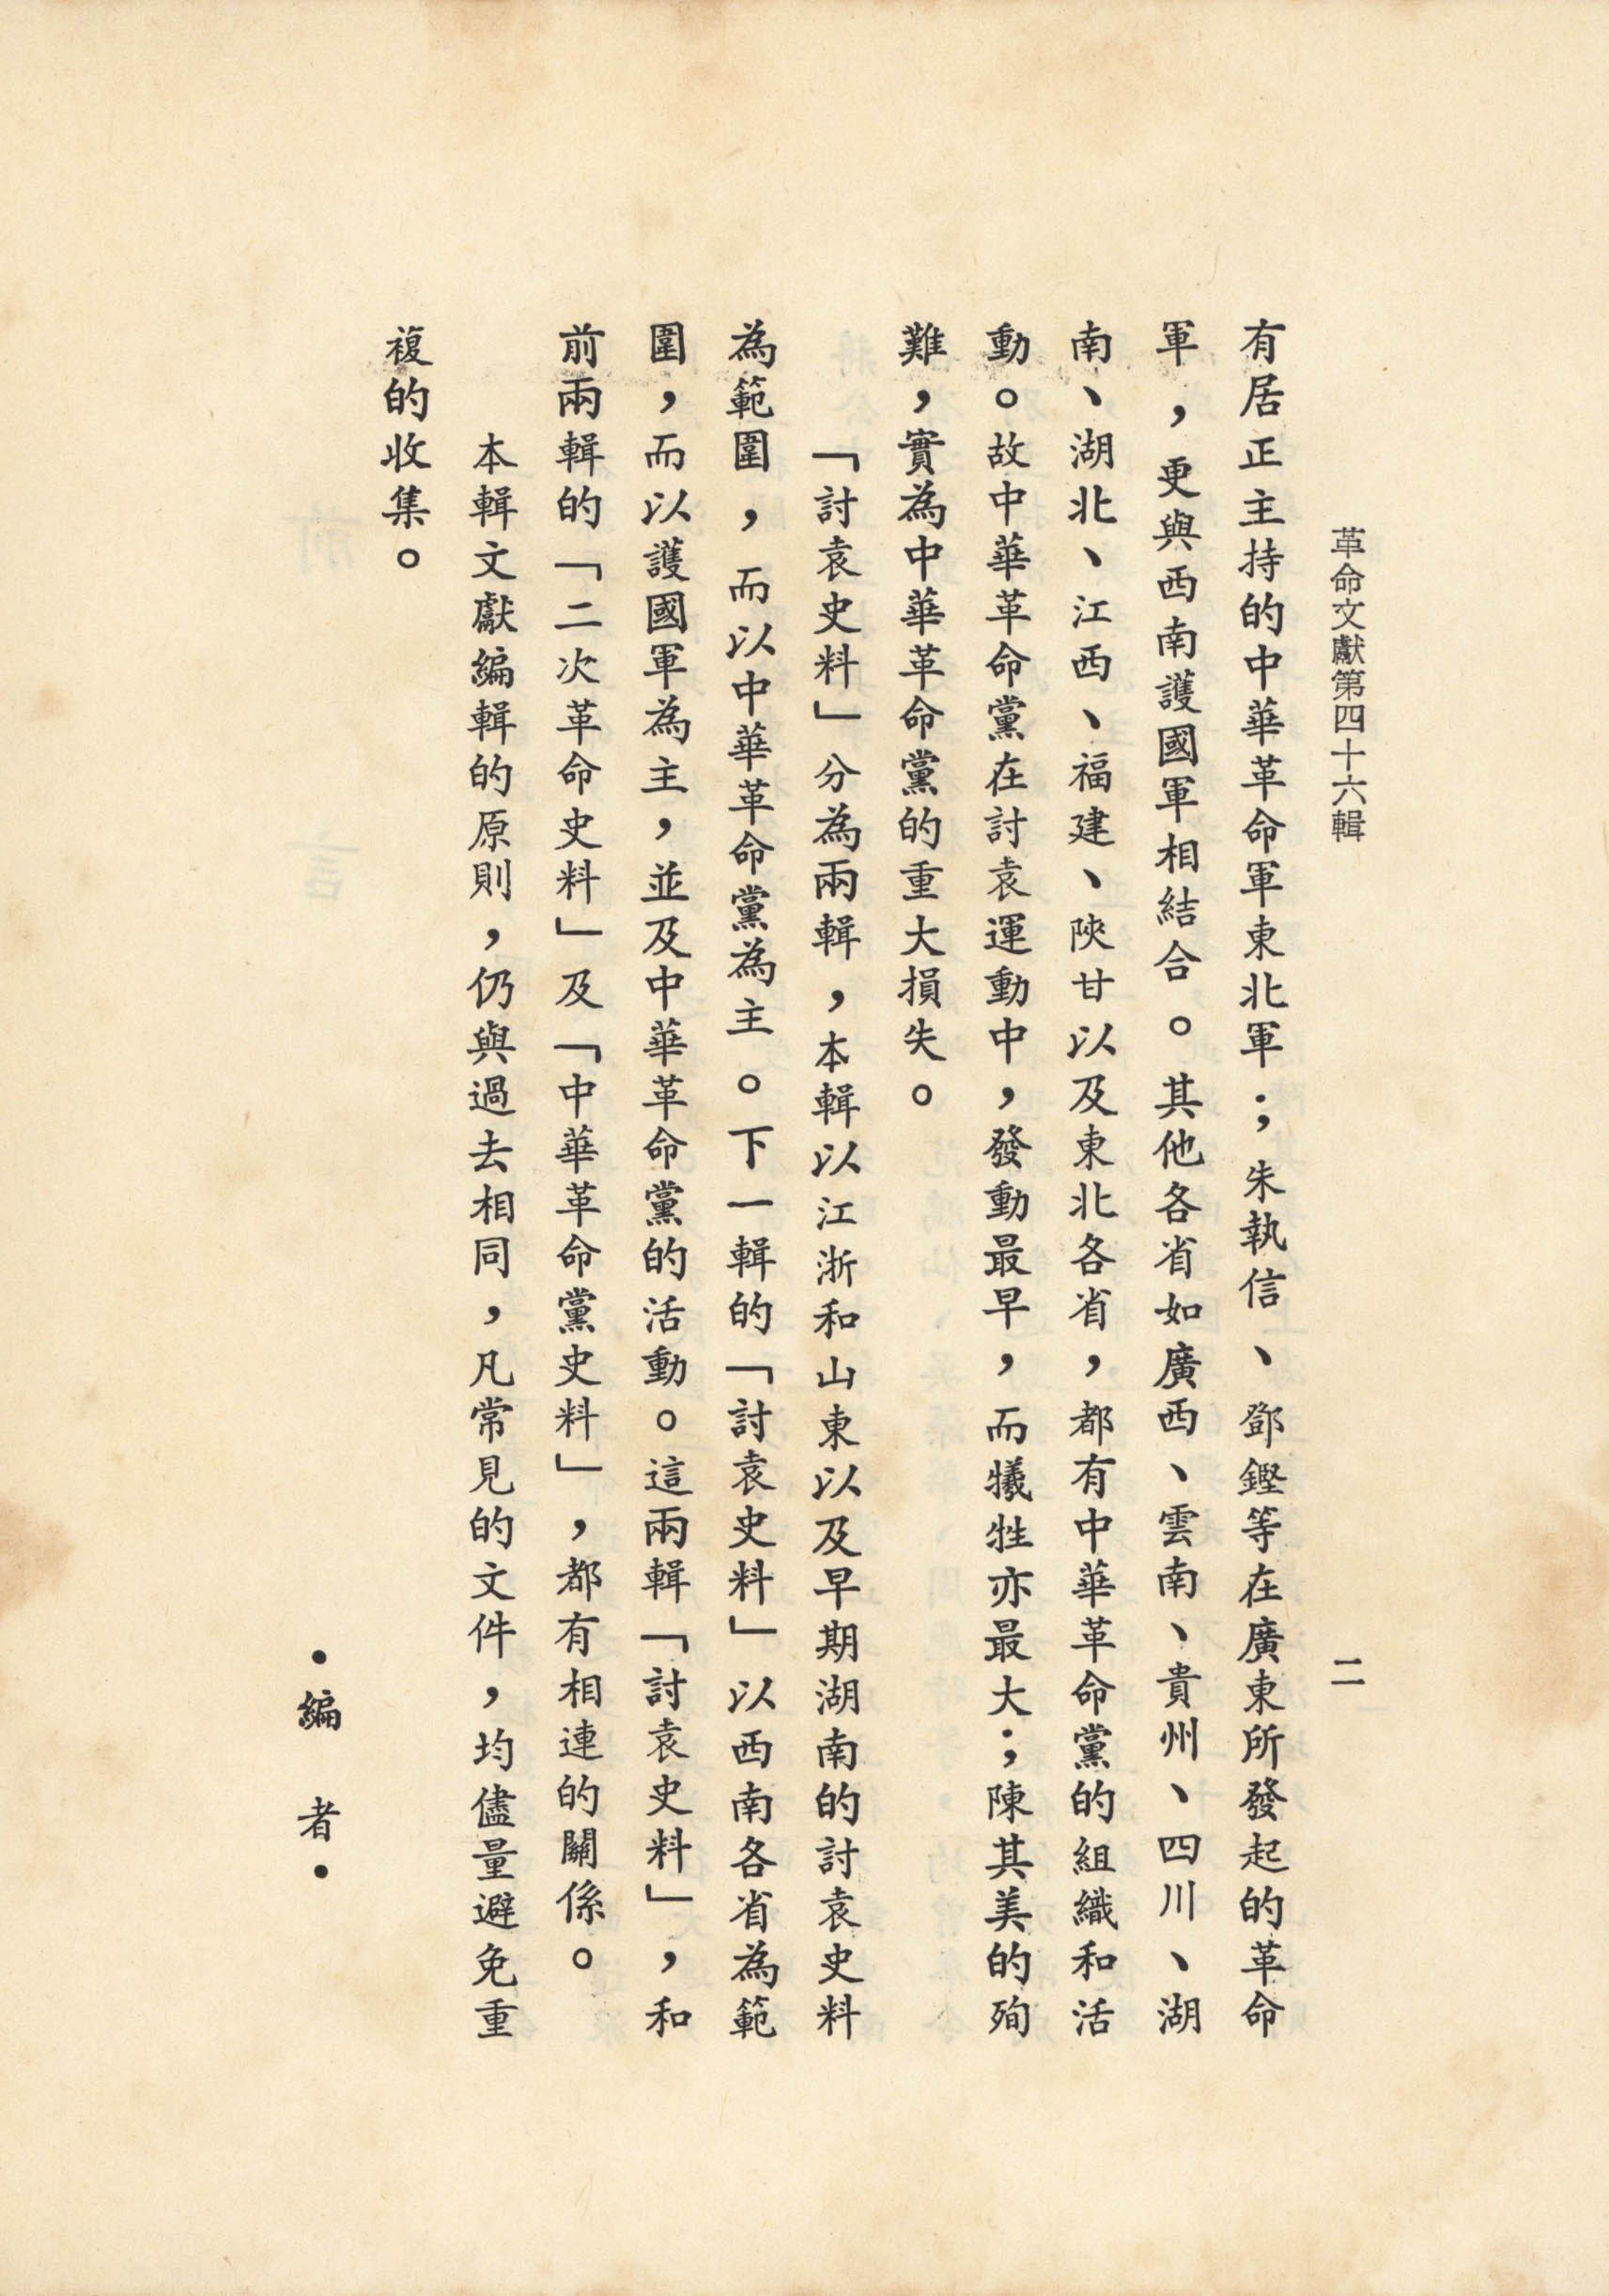 革命文獻第四十六輯
二
有居正主持的中華革命軍東北軍；朱執信、鄧鏗等在廣東所發起的革命
軍，更與西南護國軍相結合。其他各省如廣西、雲南、貴州、四川、湖
南、湖北、江西、福建、陝甘以及東北各省，都有中華革命黨的組織和活
動。故中華革命黨在討袁運動中，發動最早，而犧牲亦最大；陳其美的殉
難，實為中華革命黨的重大損失。
「討袁史料」分為兩輯，本輯以江浙和山東以及早期湖南的討袁史料
為範圍，而以中華革命黨為主。下一輯的「討袁史料」以西南各省為範
圍，而以護國軍為主，並及中華革命黨的活動。這兩輯「討袁史料」，和
前兩輯的「二次革命史料」及「中華革命黨史料」，都有相連的關係。
本輯文獻編輯的原則，仍與過去相同，凡常見的文件，均儘量避免重
複的收集。
•編　者•